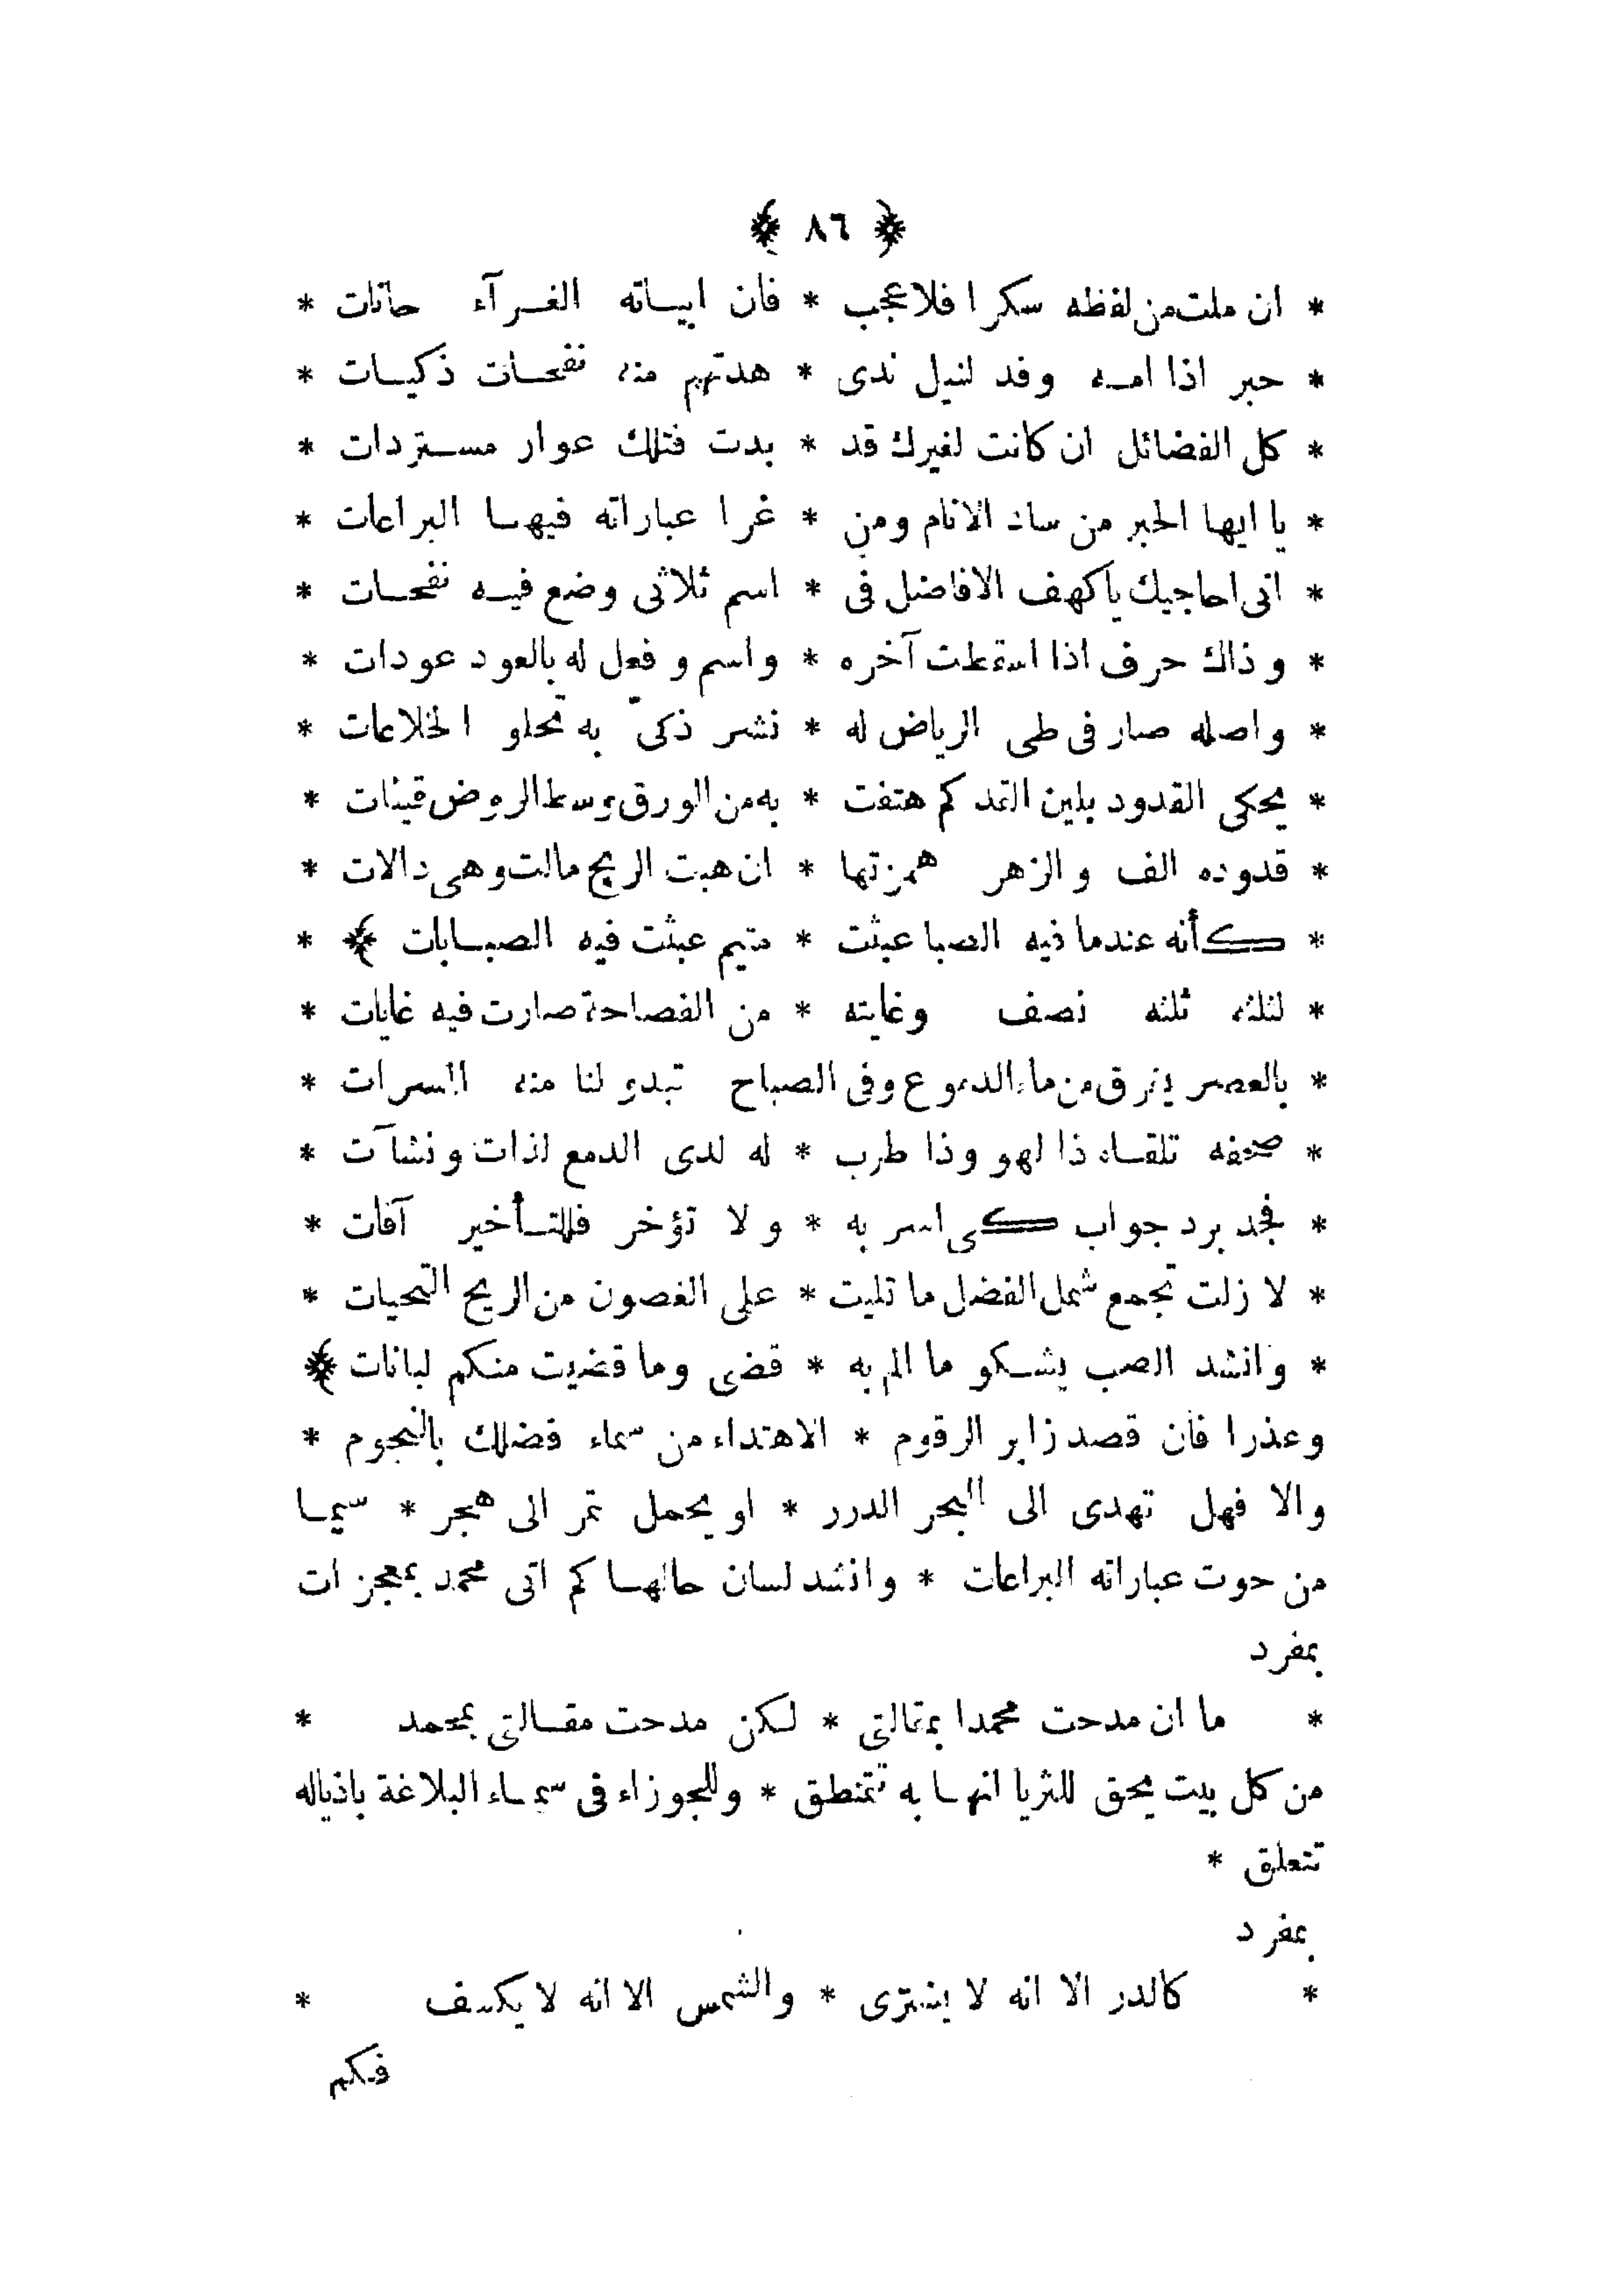 ﴿ ٨٦ ﴾
* ان ملت من لفظه سكرا فلاعجب * فان ابياته الغرآء حانات *
* حبر اذا امه وفد لنيل ندى * هدتهم منه نفحات ذكيات *
* كل الفضائل ان كانت لغيرك قد * بدت فتلك عوار مستردات *
* يا ايها الحبر من ساد الانام ومن * غرا عباراته فيها البراعات *
* انى احاجيك ياكهف الافاضل فى * اسم ثلاثى وضع فيه نفحات *
* وذاك حرف اذا اسقطت آخره * واسم وفعل له بالعود عودات *
* واصله صار فى طى الرياض له * نشر ذكىّ به تحلو الخلاعات *
* يحكى القدود بلين القد كم هتفت * به من الورق وسط الروض قينات *
* قدوده الف والزهر همزتها * ان هبت الريح مالت وهى دالات *
* كأنه عندما فيه الصبا عبثت * متيم عبثت فيه الصبابات ﴾ *
* لثلثه ثلثه نصف وغايته * من الفصاحة صارت فيه غايات *
* بالعصر يزرق من ماء الدموع وفى الصباح تبدو لنا منه المسرات *
* صحفه تلقاه ذا لهو وذا طرب * له لدى الدمع لذات ونشآت *
* فجد برد جواب كى اسر به * ولا تؤخر فللتأخير آفات *
* لا زلت تجمع شمل الفضل ما تليت * على الغصون من الريح التحيات *
* وانشد الصب يشكو ما الم به * قضى وما قضيت منكم لبانات ﴾
وعذرا فان قصد زابر الرقوم * الاهتداء من سماء فضلك بالنجوم *
والا فهل تهدى الى البحر الدرر * او يحمل تمر الى هجر * سيما
من حوت عباراته البراعات * وانشد لسان حالها كم اتى محمد بمعجزات
بمفرد
* ما ان مدحت محمدا بمقالتى * لكن مدحت مقالتى بمحمد *
من كل بيت يحق للثريا انها به تتمنطق * وللجوزاء فى سماء البلاغة باذياله
تتعلق *
بمفرد
* كالدر الا انه لا يشترى * والشمس الا انه لا يكسف *
فكم